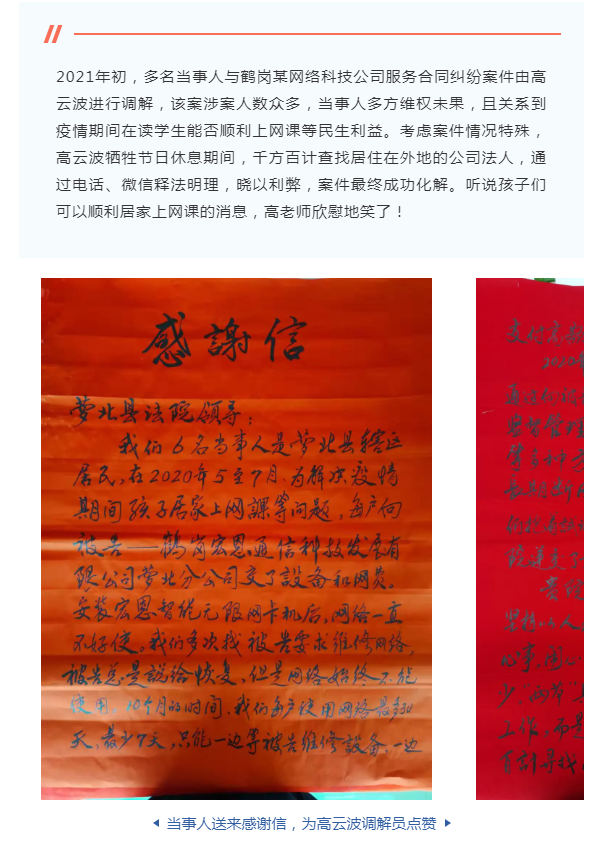 2021年初，多名当事人与鹤岗某网络科技公司服务合同纠纷案件由高
云波进行调解，该案涉案人数众多，当事人多方维权未果，且关系到
疫情期间在读学生能否顺利上网课等民生利益。考虑案件情况特殊，
高云波牺牲节日休息期间，千方百计查找居住在外地的公司法人，通
过电话、微信释法明理，晓以利弊，案件最终成功化解。听说孩子们
可以顺利居家上网课的消息，高老师欣慰地笑了！
感謝信
萝北县法院领导：
我们6名当事人是萝北县辖区
居民，在2020年5至7月，为解决疫情
期间孩子居家上网課等问题，每户向
被告——鹤岗宏恩通信科技发展有
限公司萝北分公司交了設备和网费。
安装宏恩智能无限网卡机后，网络一直
不好使。我们多次找被告要求维修网络，
被告总是説给恢复，但是网络始终不能
使用。10个月的时间，我们每户使用网络最多
天，最少7天，只能一边等被告维修設备，一边
2020
工作，而是
当事人送来感谢信，为高云波调解员点赞